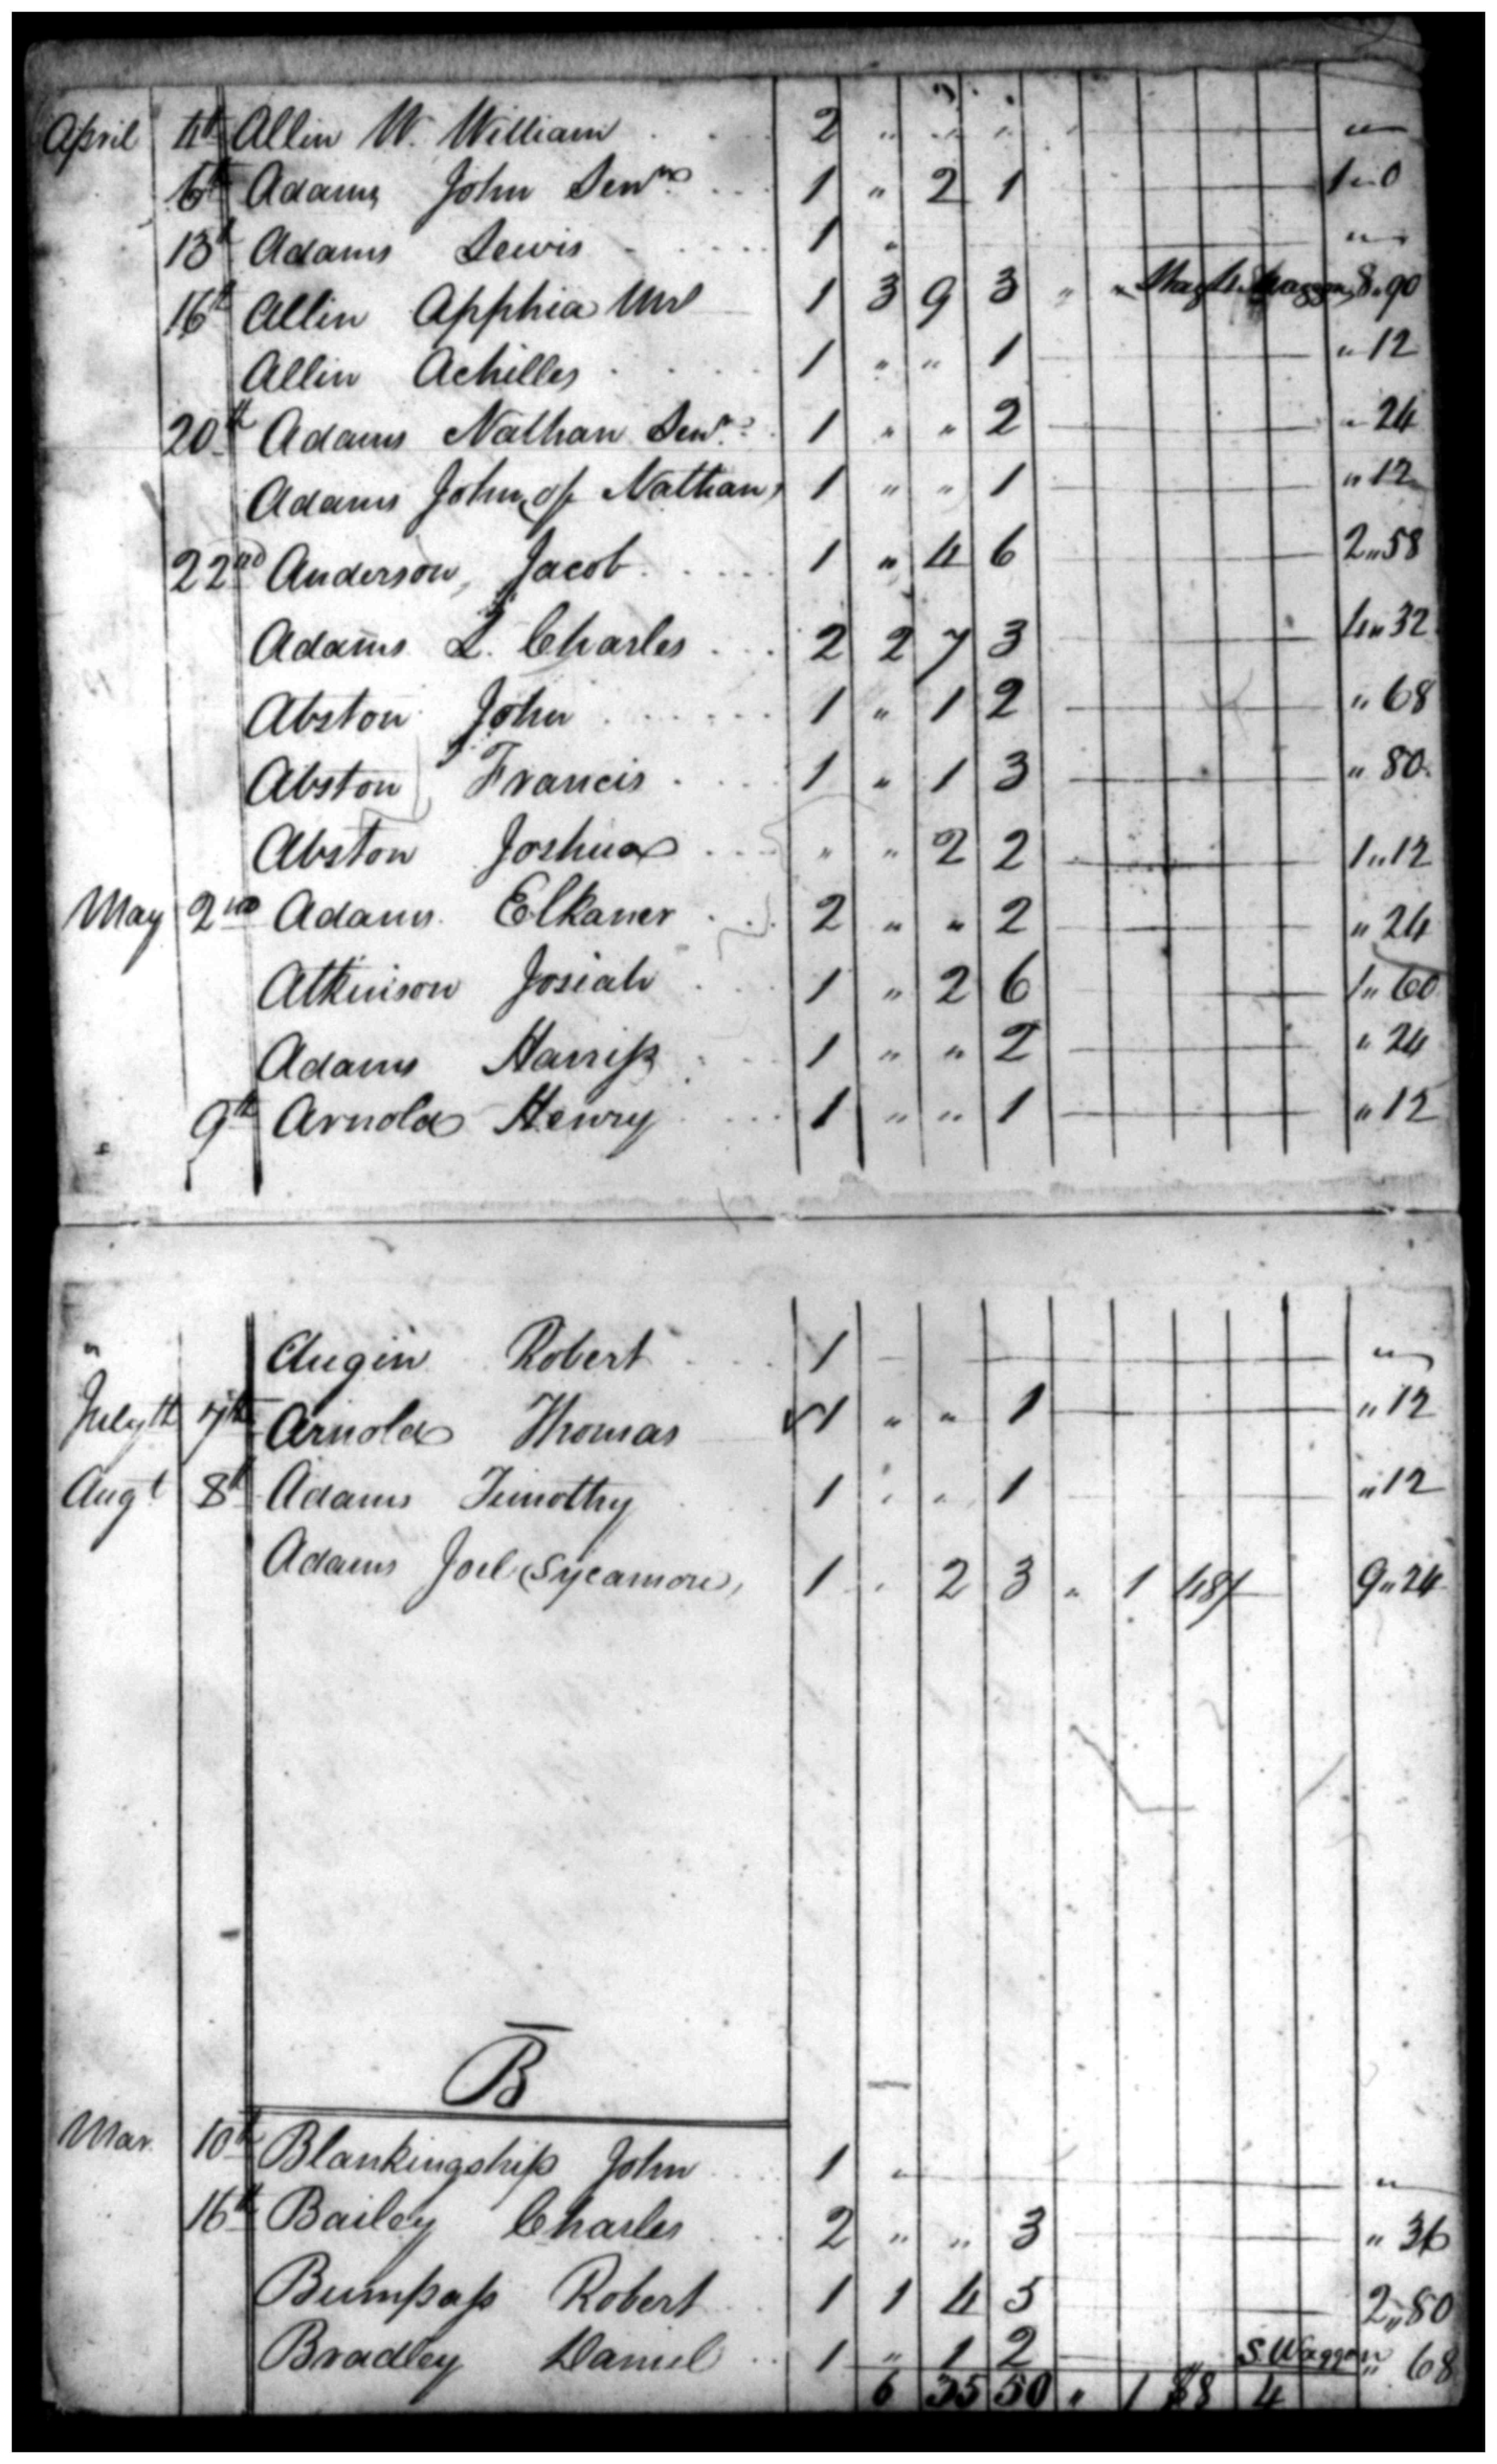 April 4th Allin W. William 2 " " " " "
6th Adams John Senr 1 " 2 1 1"0
13th Adams Lewis 1 " "
16th Allin Apphia Mrs 1 3 9 3 " " Waggon 8"90
Allin Achilles 1 " " 1 "12
20th Adams Nathan Senr 1 " " 2 "24
Adams John (of Nathan) 1 " " 1 "12
22nd Anderson, Jacob 1 " 4 6 2"58
Adams L. Charles 2 2 7 3 4"32
Abston John 1 " 1 2 "68
Abston Francis 1 " 1 3 "80
Abston Joshua " " 2 2 1"12
May 2nd Adams Elkaner 2 " " 2 "24
Atkinson Josiah 1 " 2 6 1"60
Adams Harriss 1 " " 2 "24
9th Arnold Henry 1 " " 1 "12
" Augin Robert 1 "
July th 7th Arnold Thomas 1 " " 1 "12
Augt 8th Adams Timothy 1 " " 1 "12
Adams Joel (Sycamore) 1 " 2 3 " 1 48/ 9"24
B
Mar. 10th Blankingship John 1 " "
16th Bailey Charles 2 " " 3 "36
Bumpass Robert 1 1 4 5 2"80
Bradley Daniel 1 " 1 2 S Waggon " 68
6 35 50 " 1 88 4